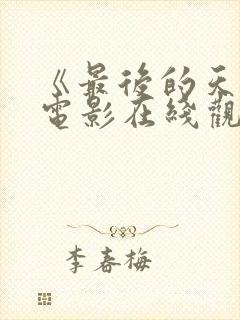 《最後的天
電影在綫觀
李春梅